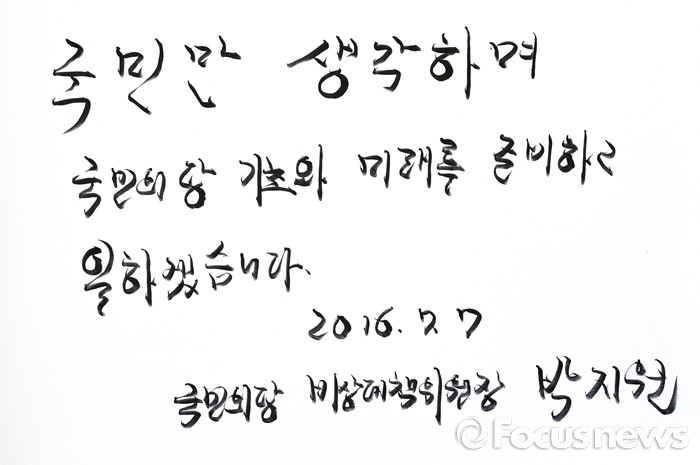 국민만 생각하며
국민의당 기초와 미래를 준비하고
일하겠습니다.
2016. 7. 7
국민의당 비상대책위원장 박지원
©Focusnews